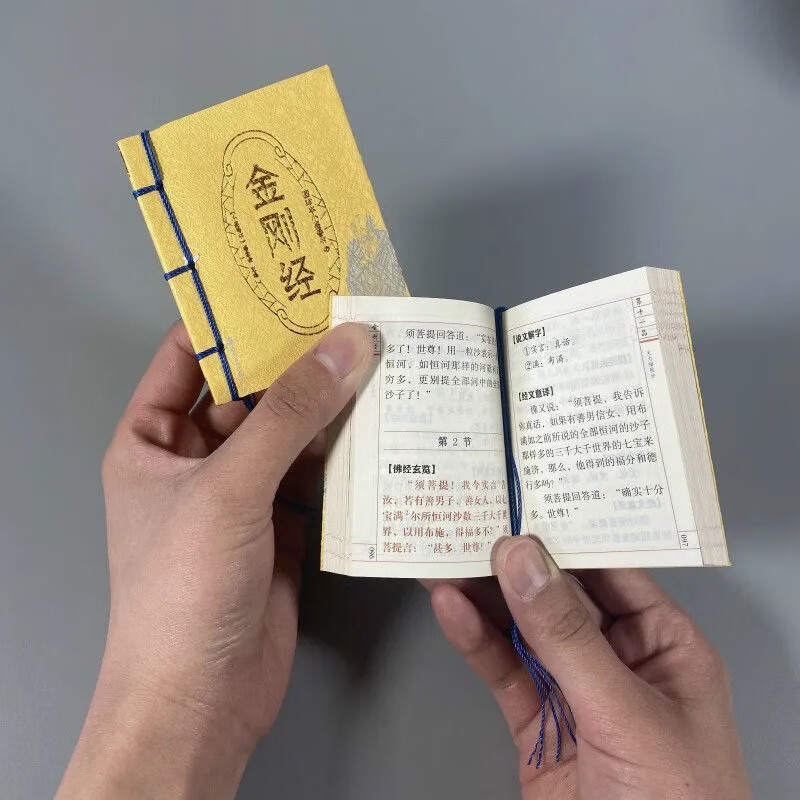 金刚经
须菩提回答道：“实在
多了！世尊！用一粒沙表示一
恒河，如恒河那样的河就
穷多，更别提全部河中的
沙子了！”
第 2 节
【佛经玄览】
“须菩提！我今实言告
汝，若有善男子、善女人，以七
宝满②尔所恒河沙数三千大千世
界，以用布施，得福多不？”须
菩提言：“甚多，世尊！”
096
第十一品
无为福胜分
【说文解字】
①实言：真话。
②满：布满。
【经文意译】
佛又说：“须菩提，我告诉
你真话，如果有善男信女，用布
满如之前所说的全部恒河的沙子
那样多的三千大千世界的七宝来
施济，那么，他得到的福分和德
行多吗？”
须菩提回答道：“确实十分
多，世尊！”
097